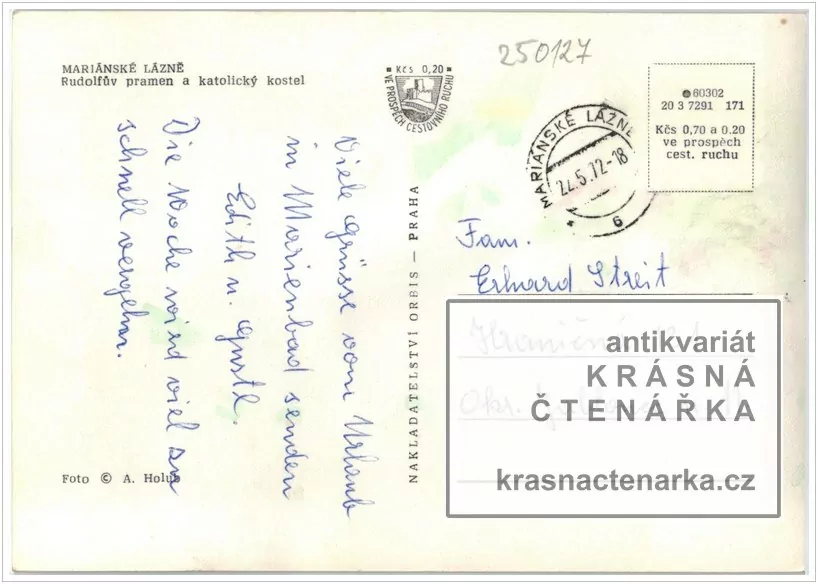 250127
MARIÁNSKÉ LÁZNĚ
Rudolfův pramen a katolický kostel
Kčs 0,20
VE PROSPĚCH CESTOVNÍHO RUCHU
MARIÁNSKÉ LÁZNĚ
22.5.72-18
6
60302
20 3 7291 171
Kčs 0,70 a 0.20
ve prospěch
cest. ruchu
Viele Grüsse vom Urlaub
in Marienbad senden
Edith u. Gustl.
Die Woche wird viel zu
schnell vergehn.
NAKLADATELSTVÍ ORBIS — PRAHA
Fam.
Erhard Streit
Okr.
antikvariát
KRÁSNÁ
ČTENÁŘKA
krasnactenarka.cz
Foto © A. Holub